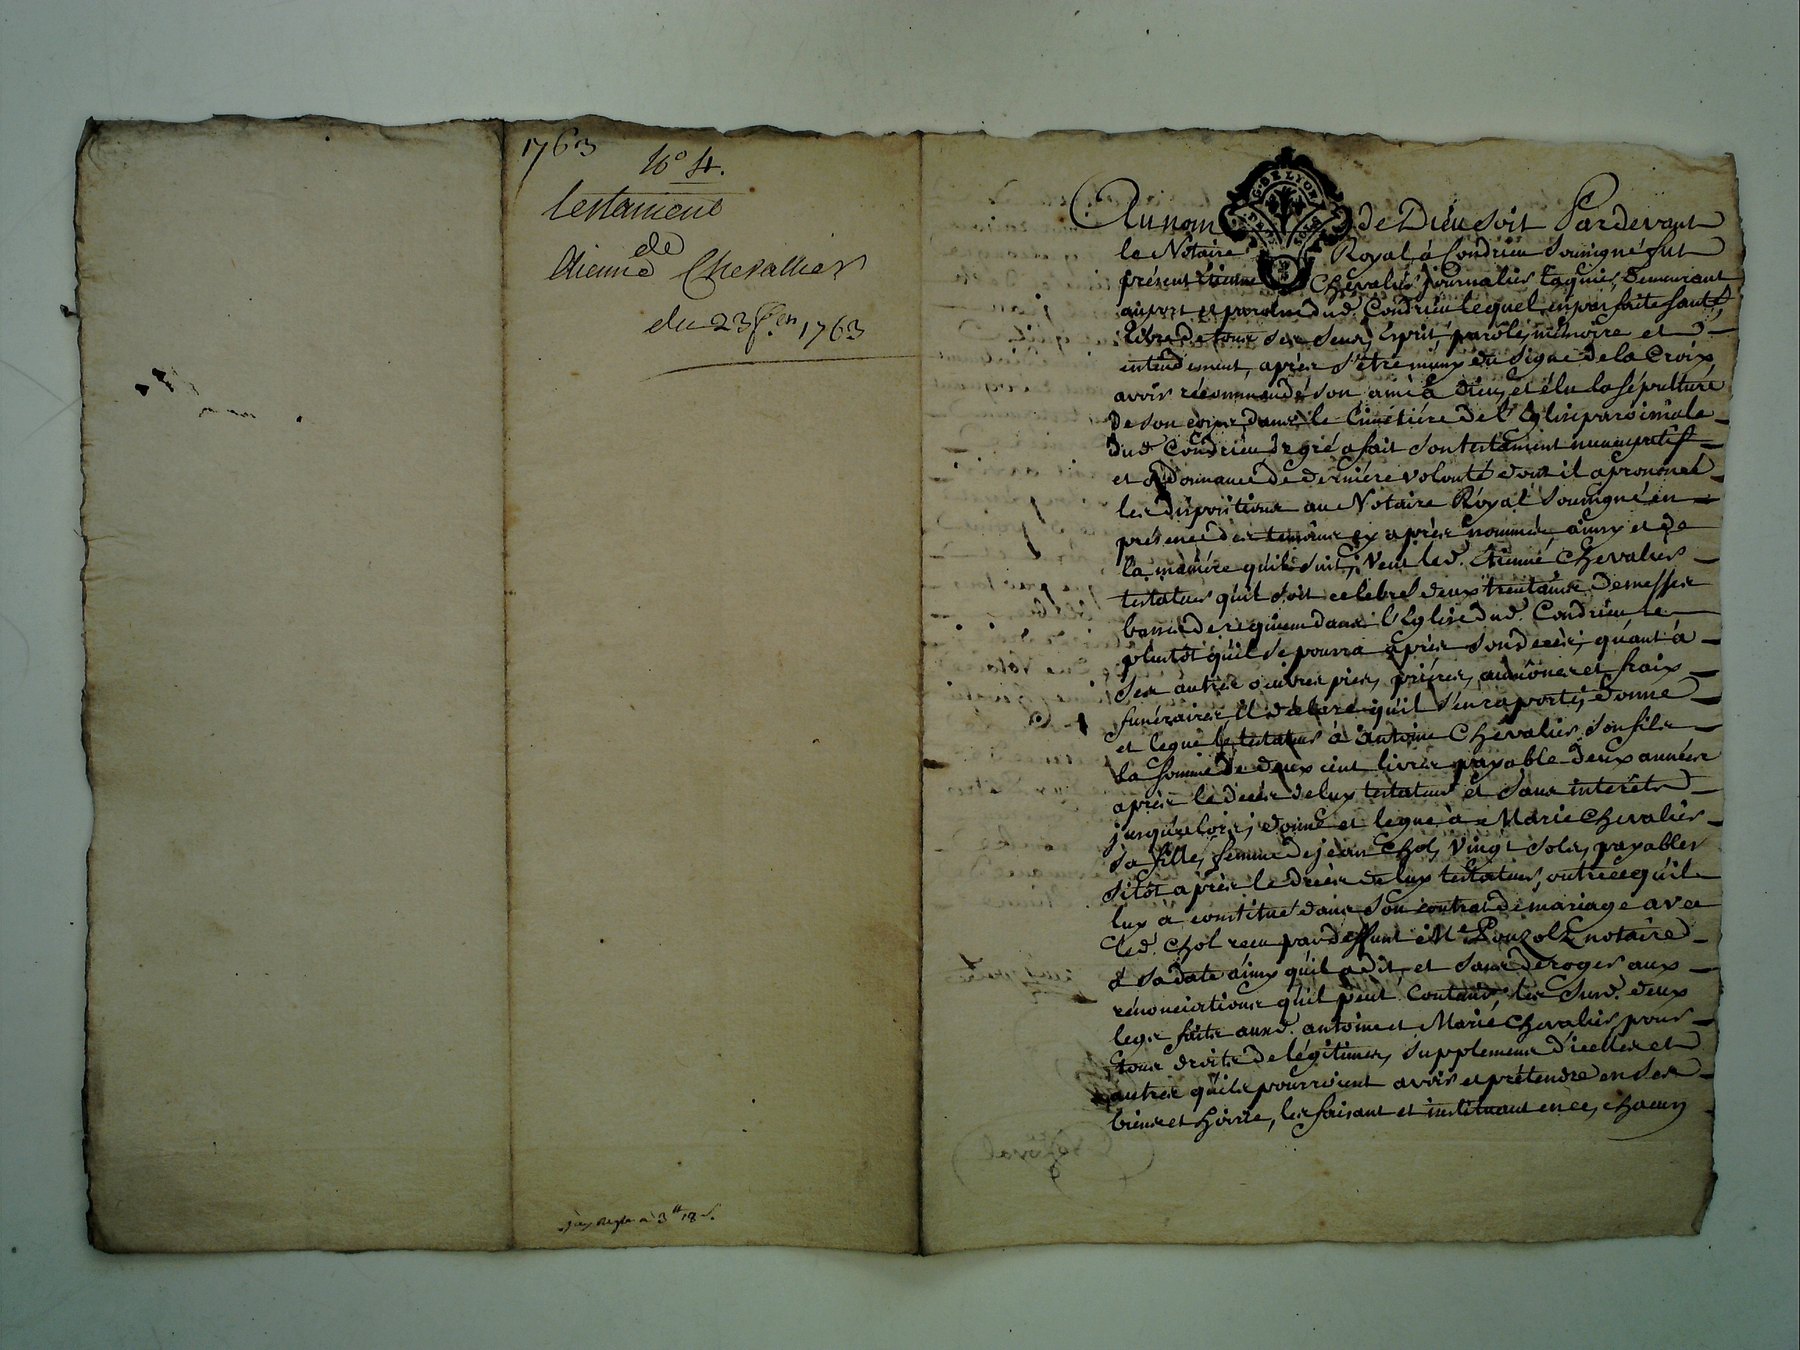 1763
No 4.
testament
de
Etienne Chevallier
du 23 1763
jay reglé a 3tt 18 s.
G. DE LYON
Au nom de Dieu soit Pardevant
le Notaire Royal à Condrieu soussigné fut
présent Etienne Chevalier journalier demeurant
au port et paroisse dud. Condrieu lequel en parfaite santé,
libre de tous ses sens, esprit, parole, mémoire et
entendement, après s'être muny du signe de la Croix
avoir récommandé son ame à Dieu, et élu la sépulture
de son corps dans le Cimetiére de l'Eglise paroissiale
dud. Condrieu de gré a fait son testament nuncupatif
et ordonnance de derniére volonté dont il a prononcé
les dispositions au Notaire Royal soussigné en
présence des temoins cy après nommés, ainsy et de
la maniére qu'il suit; Veut led. Etienne Chevalier
testateur qu'il soit celebré deux trentaines de messes
basses de requiem dans l'Eglise dud. Condrieu le
plutôt qu'il se pourra après son decès; quant à
ses autres œuvres pies, priéres, aumônes et fraix
funéraires il déclare qu'il s'en raporte; donne
et legue le testateur à antoine Chevalier son fils
la somme de deux cent livres payable deux années
après le decès de luy testateur et sans intérêts
jusqu'alors; donne et legue à Marie Chevalier
sa fille, femme de jean Chol, vingt sols, payables
sitôt après le decès de luy testateur, outre ce qu'il
luy a constitué dans son contrat de mariage avec
led. Chol recu par deffunt Me notaire
à sa date ainsy qu'il a dit, et sans deroger aux
rénonciations qu'il peut contenir, les susd. deux
legs faits auxd. antoine et Marie Chevalier pour
tous droits de légitimes, supplement d'icelles et
autres qu'ils pourroient avoir et prétendre en ses
biens et hoirie, les faisant et instituant en ce, chacun